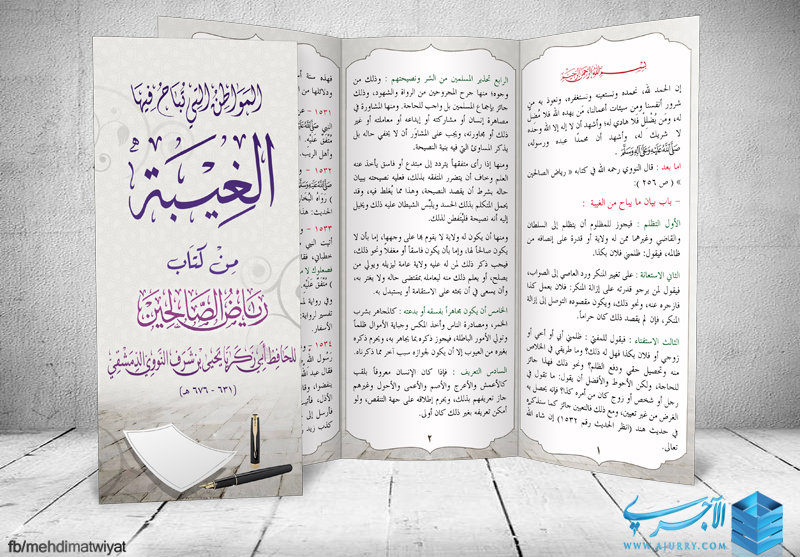 المواطن التي تباح فيها
الغيبة
من كتاب
رياض الصالحين
للحافظ أبي زكريا يحيى بن شرف النووي الدمشقي
(٦٣١ - ٦٧٦ هـ)
بسم الله الرحمن الرحيم
إن الحمد لله، نحمده ونستعينه ونستغفره، ونعوذ به من
شرور أنفسنا ومن سيئات أعمالنا، مَن يهده الله فلا مُضل
له، ومَن يُضلل فلا هادي له؛ وأشهد أن لا إله إلا الله وحده
لا شريك له، وأشهد أن محمدًا عبده ورسوله،
صلى الله عليه وآله وسلم.
اما بعد : قال النووي رحمه الله في كتابه « رياض الصالحين
» ( ص ٢٥٦ ) :
- باب بيان ما يباح من الغيبة :
الأول التظلم : فيجوز للمظلوم أن يتظلم إلى السلطان
والقاضي وغيرهما ممن له ولاية أو قدرة على إنصافه من
ظالمه، فيقول: ظلمني فلان بكذا.
الثاني الاستعانة : على تغيير المنكر ورد العاصي إلى الصواب،
فيقول لمن يرجو قدرته على إزالة المنكر: فلان يعمل كذا
فازجره عنه، ونحو ذلك، ويكون مقصوده التوصل إلى إزالة
المنكر، فإن لم يقصد ذلك كان حراماً.
الثالث الاستفتاء : فيقول للمفتي : ظلمني أبي أو أخي أو
زوجي أو فلان بكذا فهل له ذلك؟ وما طريقي في الخلاص
منه وتحصيل حقي ودفع الظلم؟ ونحو ذلك فهذا جائز
للحاجة، ولكن الأحوط والأفضل أن يقول: ما تقول في
رجل أو شخص أو زوج كان من أمره كذا؟ فإنه يحصل به
الغرض من غير تعيين، ومع ذلك فالتعيين جائز كما سنذكره
في حديث هند (انظر الحديث رقم ١٥٣٢) إن شاء الله
تعالى.
١
الرابع تحذير المسلمين من الشر ونصيحتهم : وذلك من
وجوه؛ منها جرح المجروحين من الرواة والشهود، وذلك
جائز بإجماع المسلمين بل واجب للحاجة. ومنها المشاورة في
مصاهرة إنسان أو مشاركته أو إيداعه أو معاملته أو غير
ذلك أو مجاورته، ويجب على المشاوَر أن لا يخفي حاله بل
يذكر المساوئ التي فيه بنية النصيحة.
ومنها إذا رأى متفقها يتردد إلى مبتدع أو فاسق يأخذ عنه
العلم وخاف أن يتضرر المتفقه بذلك، فعليه نصيحته ببيان
حاله بشرط أن يقصد النصيحة، وهذا مما يُغلط فيه، وقد
يحمل المتكلم بذلك الحسد ويلبِّس الشيطان عليه ذلك ويخيل
إليه أنه نصيحة فليُتفطن لذلك.
ومنها أن يكون له ولاية لا يقوم بها على وجهها، إما بأن لا
يكون صالحاً لها، وإما بأن يكون فاسقاً أو مغفلاً ونحو ذلك،
فيجب ذكر ذلك لمن له عليه ولاية عامة ليزيله ويولي من
يصلح، أو يعلم ذلك منه ليعامله بمقتضى حاله ولا يغتر به،
وأن يسعى في أن يحثه على الاستقامة أو يستبدل به.
الخامس أن يكون مجاهراً بفسقه أو بدعته : كالمجاهر بشرب
الخمر، ومصادرة الناس وأخذ المكس وجباية الأموال ظلماً
وتولي الأمور الباطلة، فيجوز ذكره بما يجاهر به، ويحرم ذكره
بغيره من العيوب إلا أن يكون لجوازه سبب آخر مما ذكرناه.
السادس التعريف : فإذا كان الإنسان معروفاً بلقب
كالأعمش والأعرج والأصم والأعمى والأحول وغيرهم
جاز تعريفهم بذلك، ويحرم إطلاقه على جهة التنقص، ولو
أمكن تعريفه بغير ذلك كان أولى.
٢
فهذه ستة أ
١٥٣١ - عن
١٥٣٢
١٥٣٣
١٥٣٤
fb/mehdimatwiyat
الآجري
WWW.AJURRY.COM